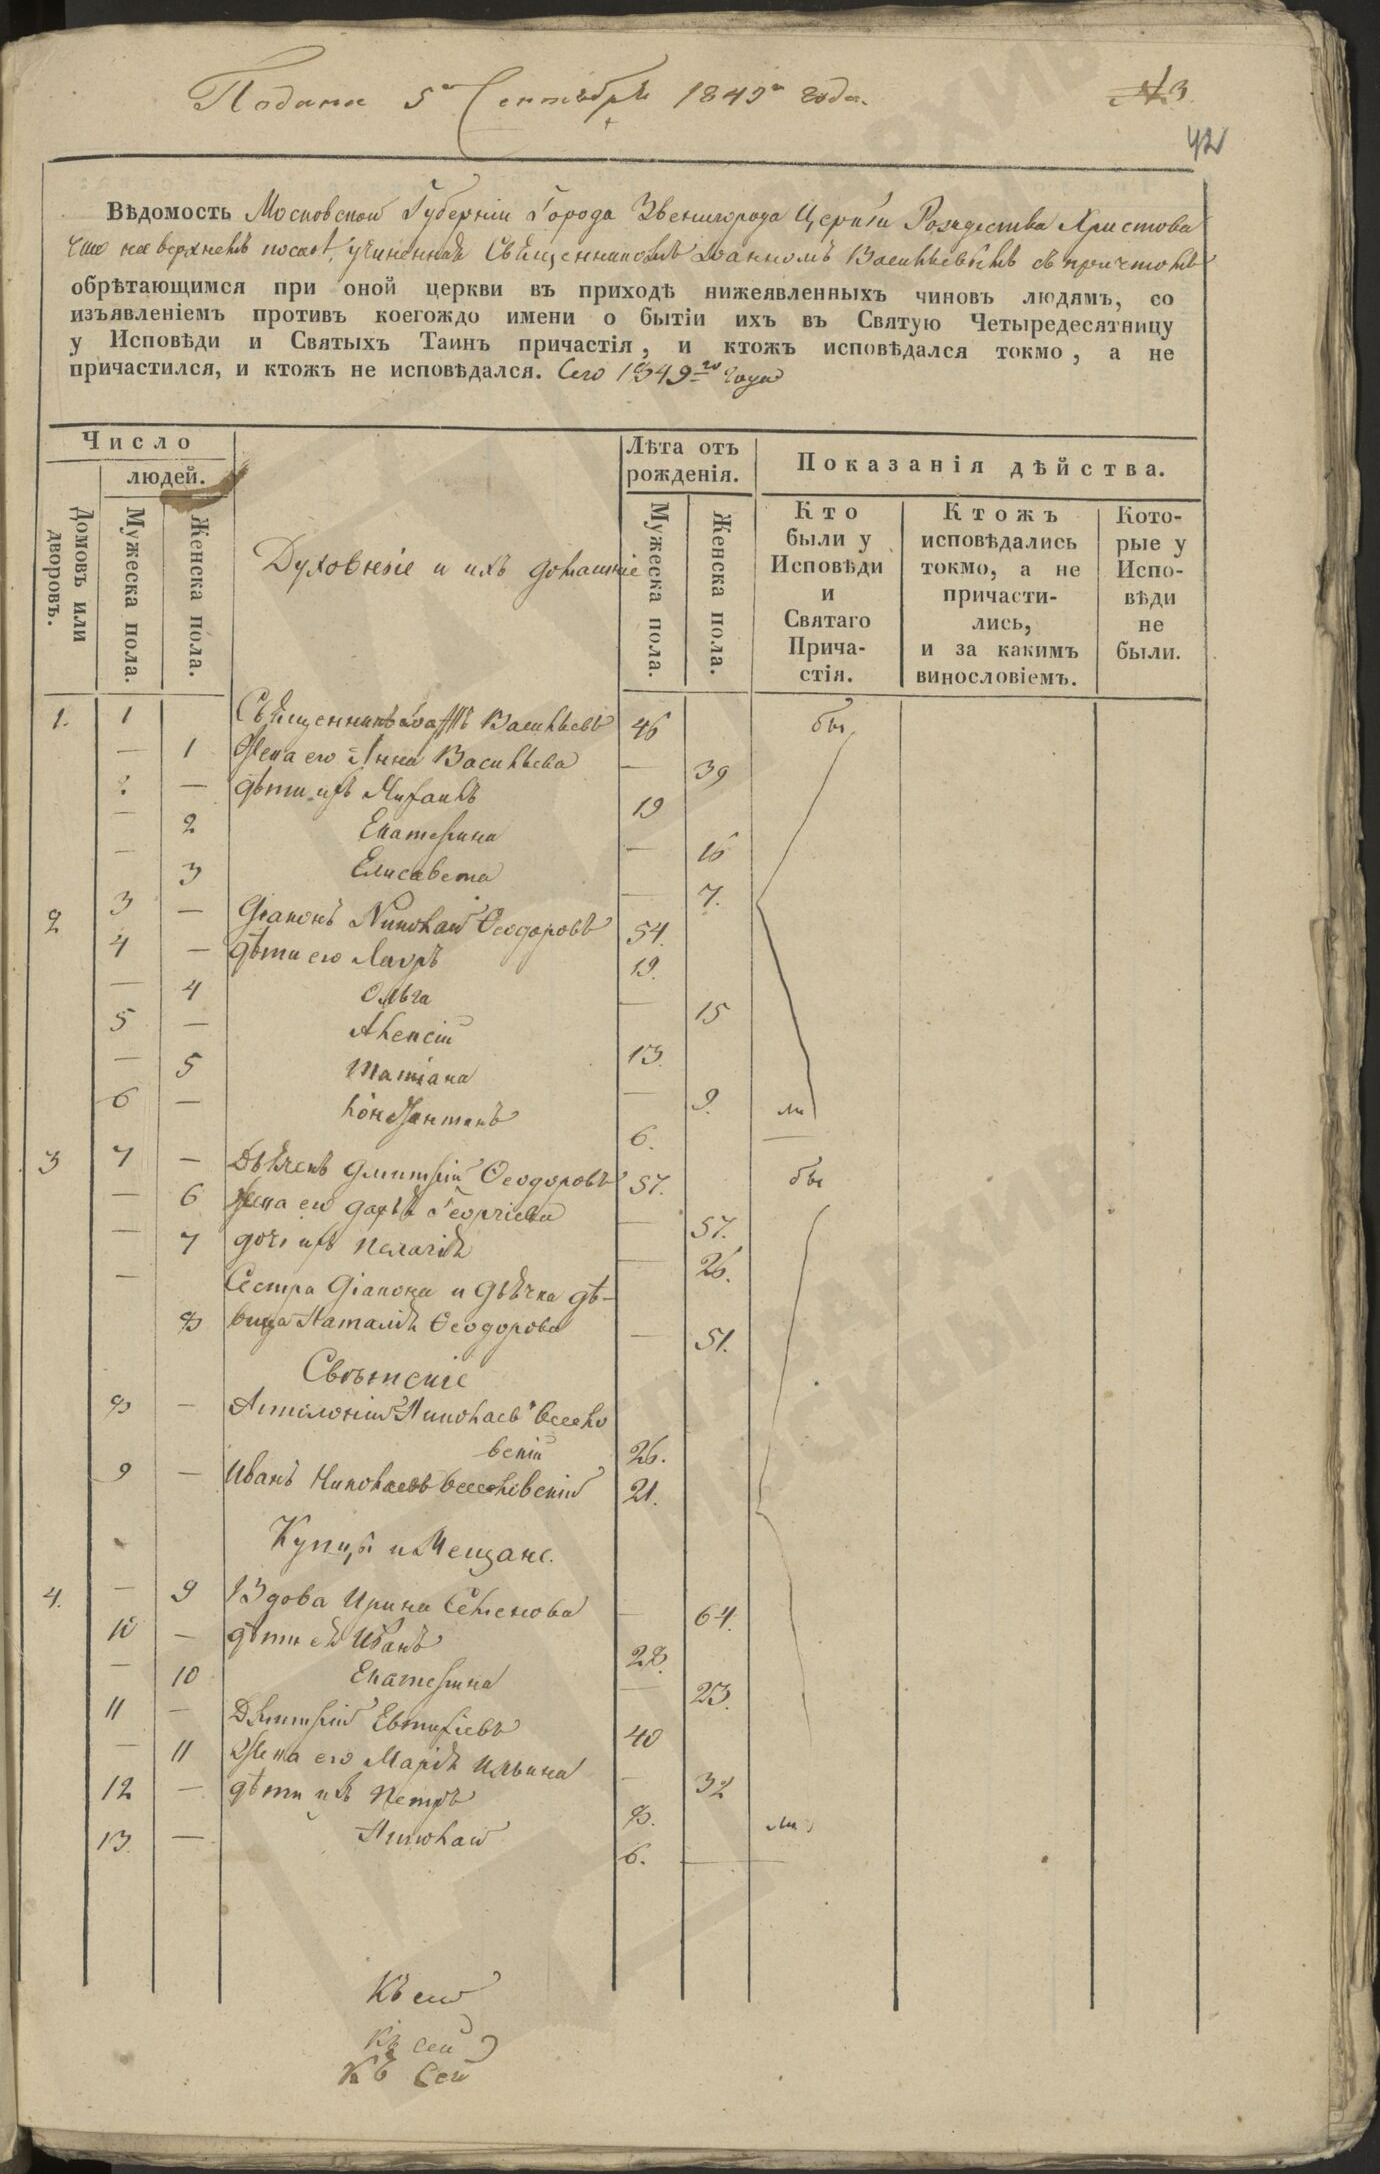 Подана 5го Сентября 1849го года.
№ 3.
42
Вѣдомость Московской Губерніи Города Звенигорода Церкви Рождества Христова
что на верхнемъ посадѣ, учиненная Священникомъ Іоанномъ Васильевымъ съ причтомъ
обрѣтающимся при оной церкви въ приходѣ нижеявленныхъ чиновъ людямъ, со
изъявленіемъ противъ коегождо имени о бытіи ихъ въ Святую Четыредесятницу
у Исповѣди и Святыхъ Таинъ причастія, и ктожъ исповѣдался токмо, а не
причастился, и ктожъ не исповѣдался. Сего 1849го года
Число
людей.
Домовъ или дворовъ.
Мужеска пола.
Женска пола.
Духовные и ихъ домашніе
Лѣта отъ рожденія.
Мужеска пола.
Женска пола.
Показанія дѣйства.
Кто были у Исповѣди и Святаго Прича-стія.
Ктожъ исповѣдались токмо, а не причасти-лись, и за какимъ винословіемъ.
Кото-рые у Испо-вѣди не были.
1. 1 Священникъ Іоаннъ Васильевъ 46 бы
— 1 Жена его Анна Васильева — 39
2 — дѣти ихъ Михаилъ 19
— 2 Екатерина — 16
— 3 Елисавета — 7.
2 3 — Діаконъ Николай Ѳеодоровъ 54.
4 — дѣти его Лавръ 19.
— 4 Ольга — 15
5 — Алексій 13.
— 5 Татіана — 9.
6 — Константинъ 6. ли
3 7 — Дьячекъ Дмитрій Ѳеодоровъ 57. бы
— 6 Жена его Дарья Георгіева — 57.
— 7 дочь ихъ Пелагія — 26.
— Сестра Діакона и Дьячка дѣ-
8 вица Наталія Ѳеодорова — 51.
Свѣтскіе
8 — Николаевъ
вскій 26.
9 — Иванъ Николаевъ 21.
Купцы и Мещане.
4. — 9 Вдова Ирина Семенова — 64.
10 — дѣти ея Иванъ 28.
— 10 Екатерина — 23.
11 — Дмитрій Евтихіевъ 40
— 11 Жена его Марія Ильина — 32
12 — дѣти ихъ Петръ 8. ли
13. — Николай 6. —
Къ сей
Къ сей
Къ сей